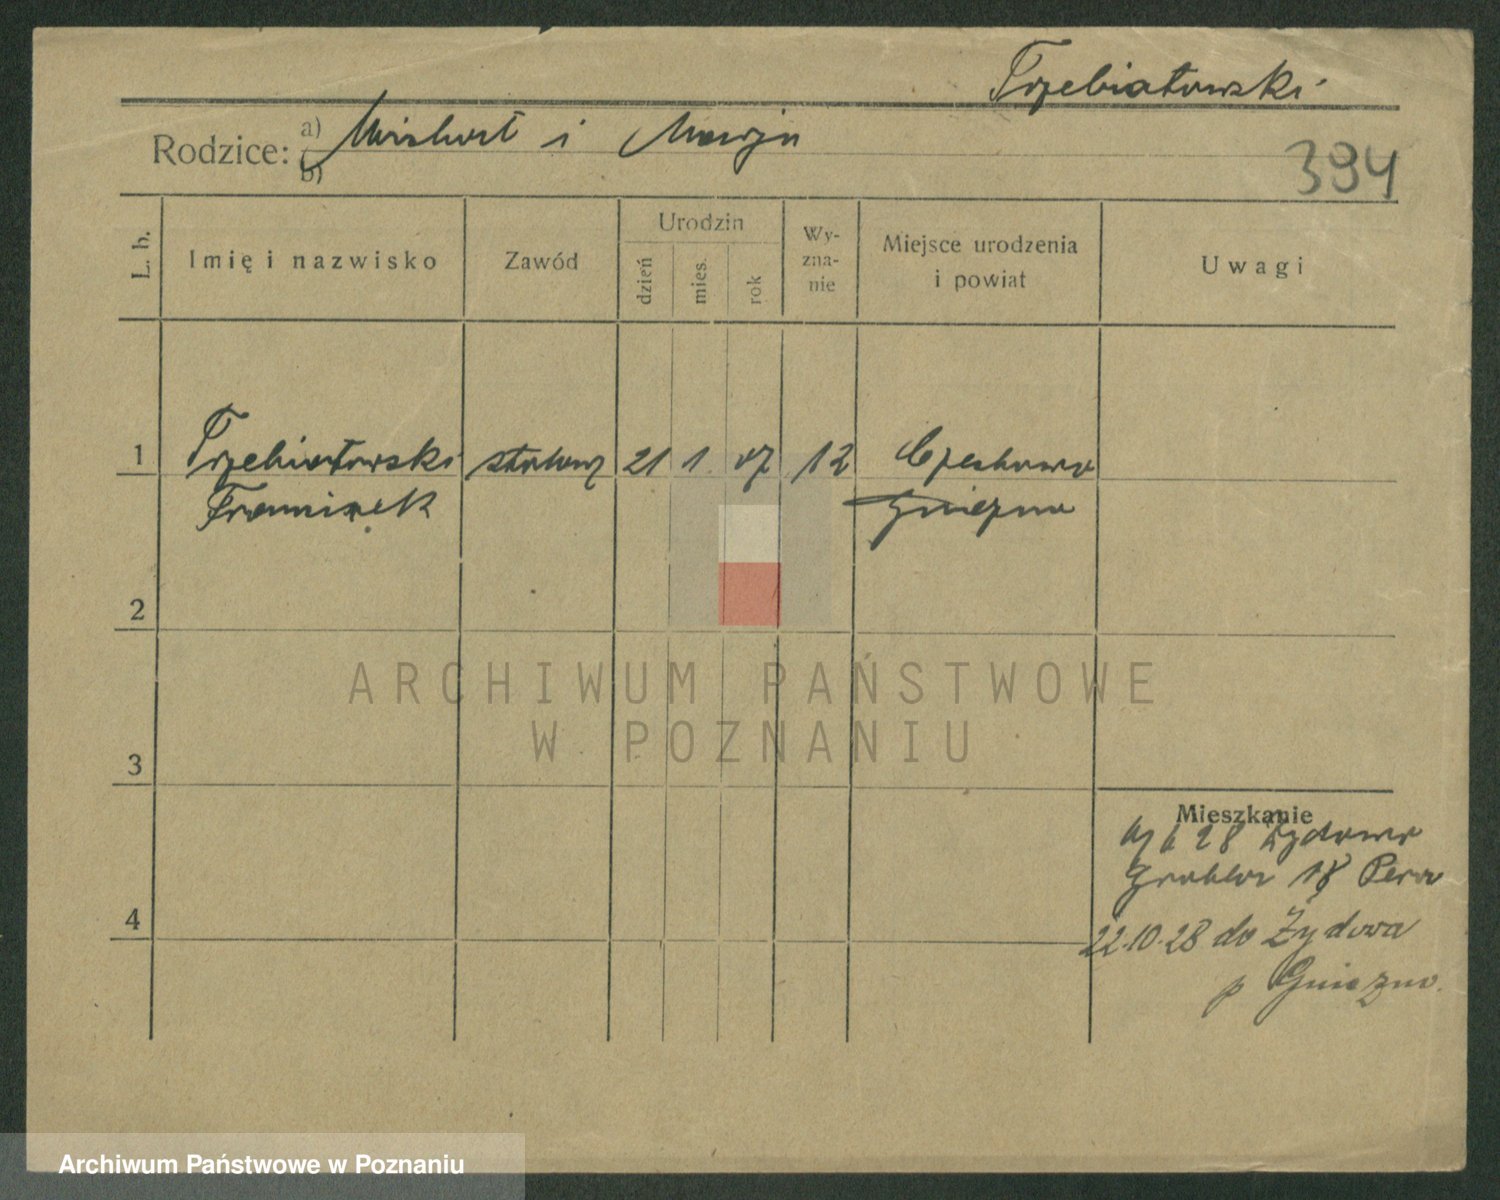 Trzebiatowski
Rodzice: a) Michał i Marja
b)
394
L. b.
Imię i nazwisko
Zawód
Urodzin
dzień
mies.
rok
Wy-
zna-
nie
Miejsce urodzenia
i powiat
Uwagi
1 Trzebiatowski stolarz 21 1 07
Franciszek Gniezno
2
ARCHIWUM PAŃSTWOWE
W POZNANIU
3
Mieszkanie
28 Żydowo
18
4
22.10.28 do Żydowa
p Gniezno.
Archiwum Państwowe w Poznaniu